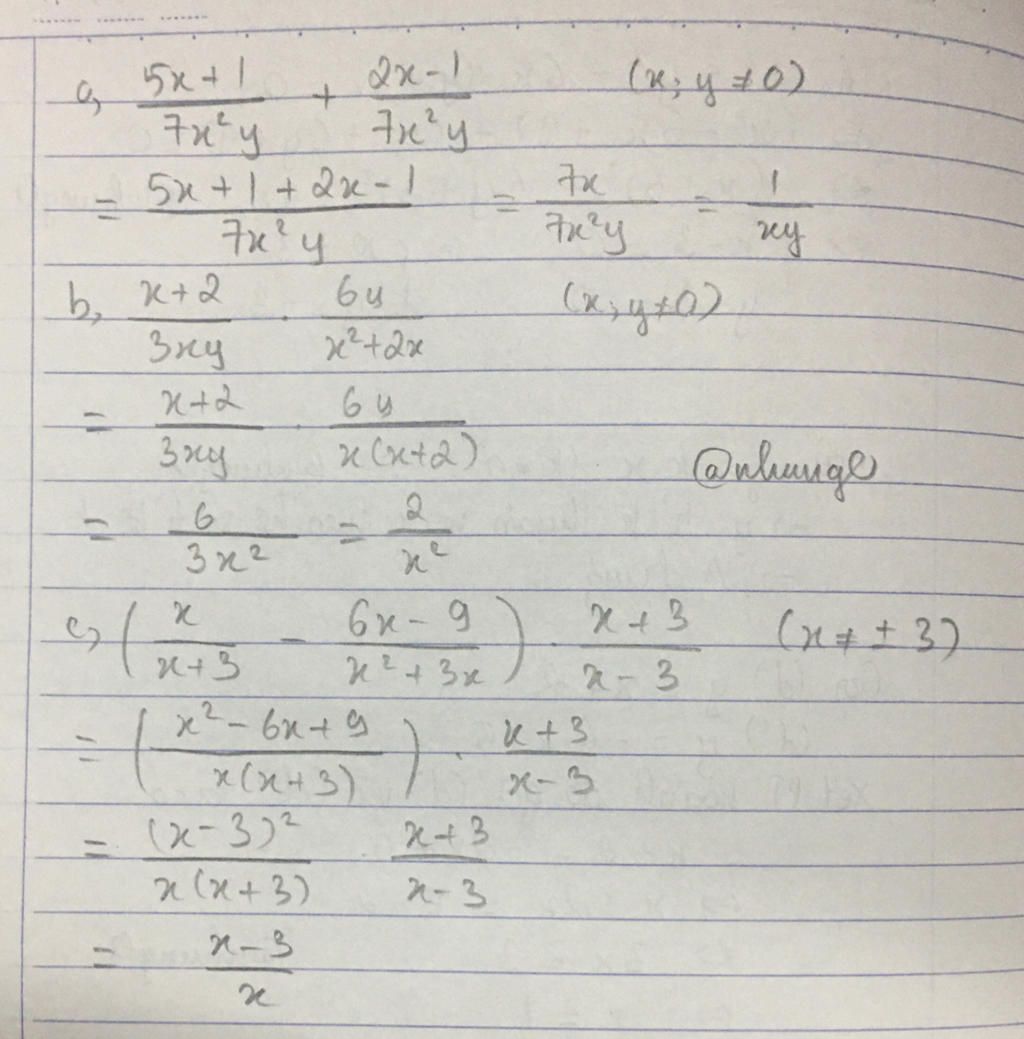 a, (5x+1)/(7x²y) + (2x-1)/(7x²y) (x; y ≠ 0)
= (5x+1+2x-1)/(7x²y) = 7x/(7x²y) = 1/(xy)
b, (x+2)/(3xy) · 6y/(x²+2x) (x; y ≠ 0)
= (x+2)/(3xy) · 6y/(x(x+2))
@nhungl
= 6/(3x²) = 2/x²
c, (x/(x+3) - (6x-9)/(x²+3x)) · (x+3)/(x-3) (x ≠ ± 3)
= ((x²-6x+9)/(x(x+3))) · (x+3)/(x-3)
= (x-3)²/(x(x+3)) · (x+3)/(x-3)
= (x-3)/x